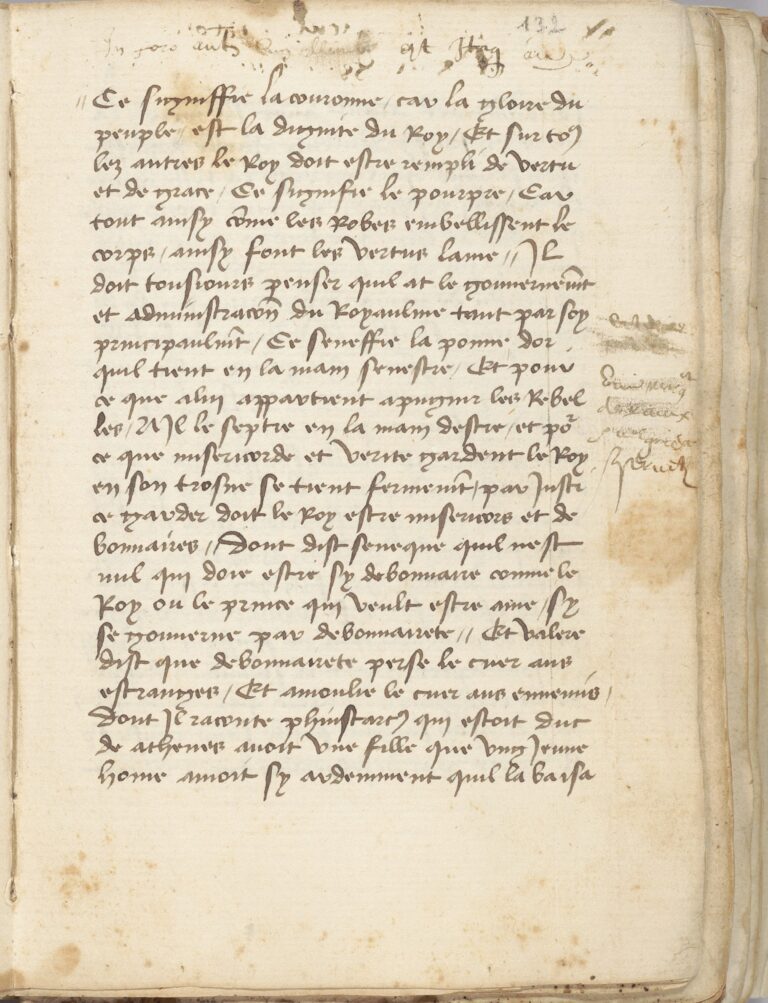 132
Jn foro
et Jtaq
Ce signiffie la couronne / car la gloire du
peuple / est la dignite du Roy / Et sur to9
lez autres le Roy doit estre rempli de vertu
et de grace / Ce signifie le pourpre / Car
tout ainsy cōme les Robes embellissent le
corps / ainsy font les vertus lame // Jl
doit tousiours penser quil at le gouvernem̄t
et administracōn du Royaulme tant par soy
principaulm̄t / Ce seneffie la pomme dor
quil tient en la main senestre / Et pour
ce que alui appartient apugnir les Rebel
les / Al Jl le septre en la main destre / et po͛
ce que misericorde et verite gardent le Roy
en son trosne se tient fermem̄t / par Justi
ce garder doit le Roy estre misericors et de
bonnaires // Dont dist seneque quil nest
nul qui doie estre sy debonnaire comme le
Roy ou le prince qui veult estre aime / sy
se gouverne par debonnairete // Et valere
dist que debonnairete perse le cuer aus
estranges / Et amoulie le cuer aus ennemis /
Dont Jl raconte phinstarc9 qui estoit duc
de athenes avoit une fille que ung Jeune
home amoit sy ardemment quil la baisa